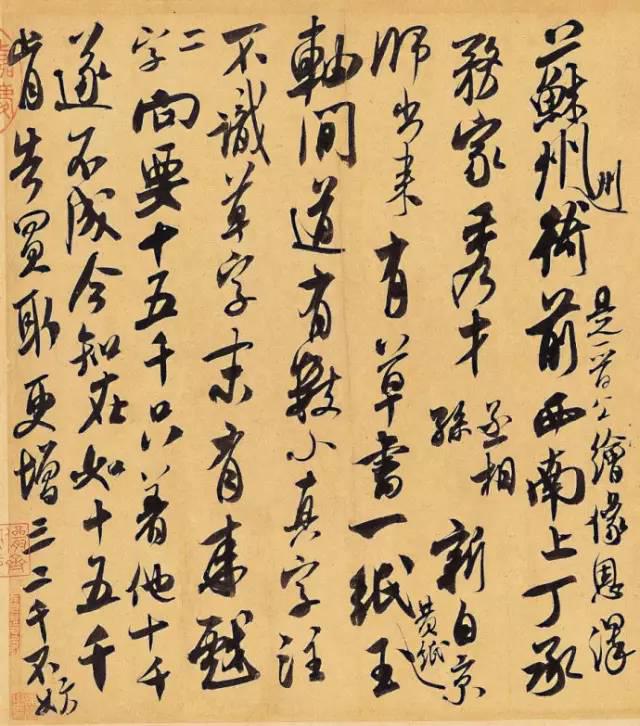 蘇州衙前西南上丁承
是晉公繪像恩澤
務家秀才丞相孫新自京
師出來有草書一紙黃紙玉
軸間道有數小真字注
不識草字末有來戲
二字向要十五千只著他十千
遂不成今知在如十五千
肯告買取更增三二千不妨